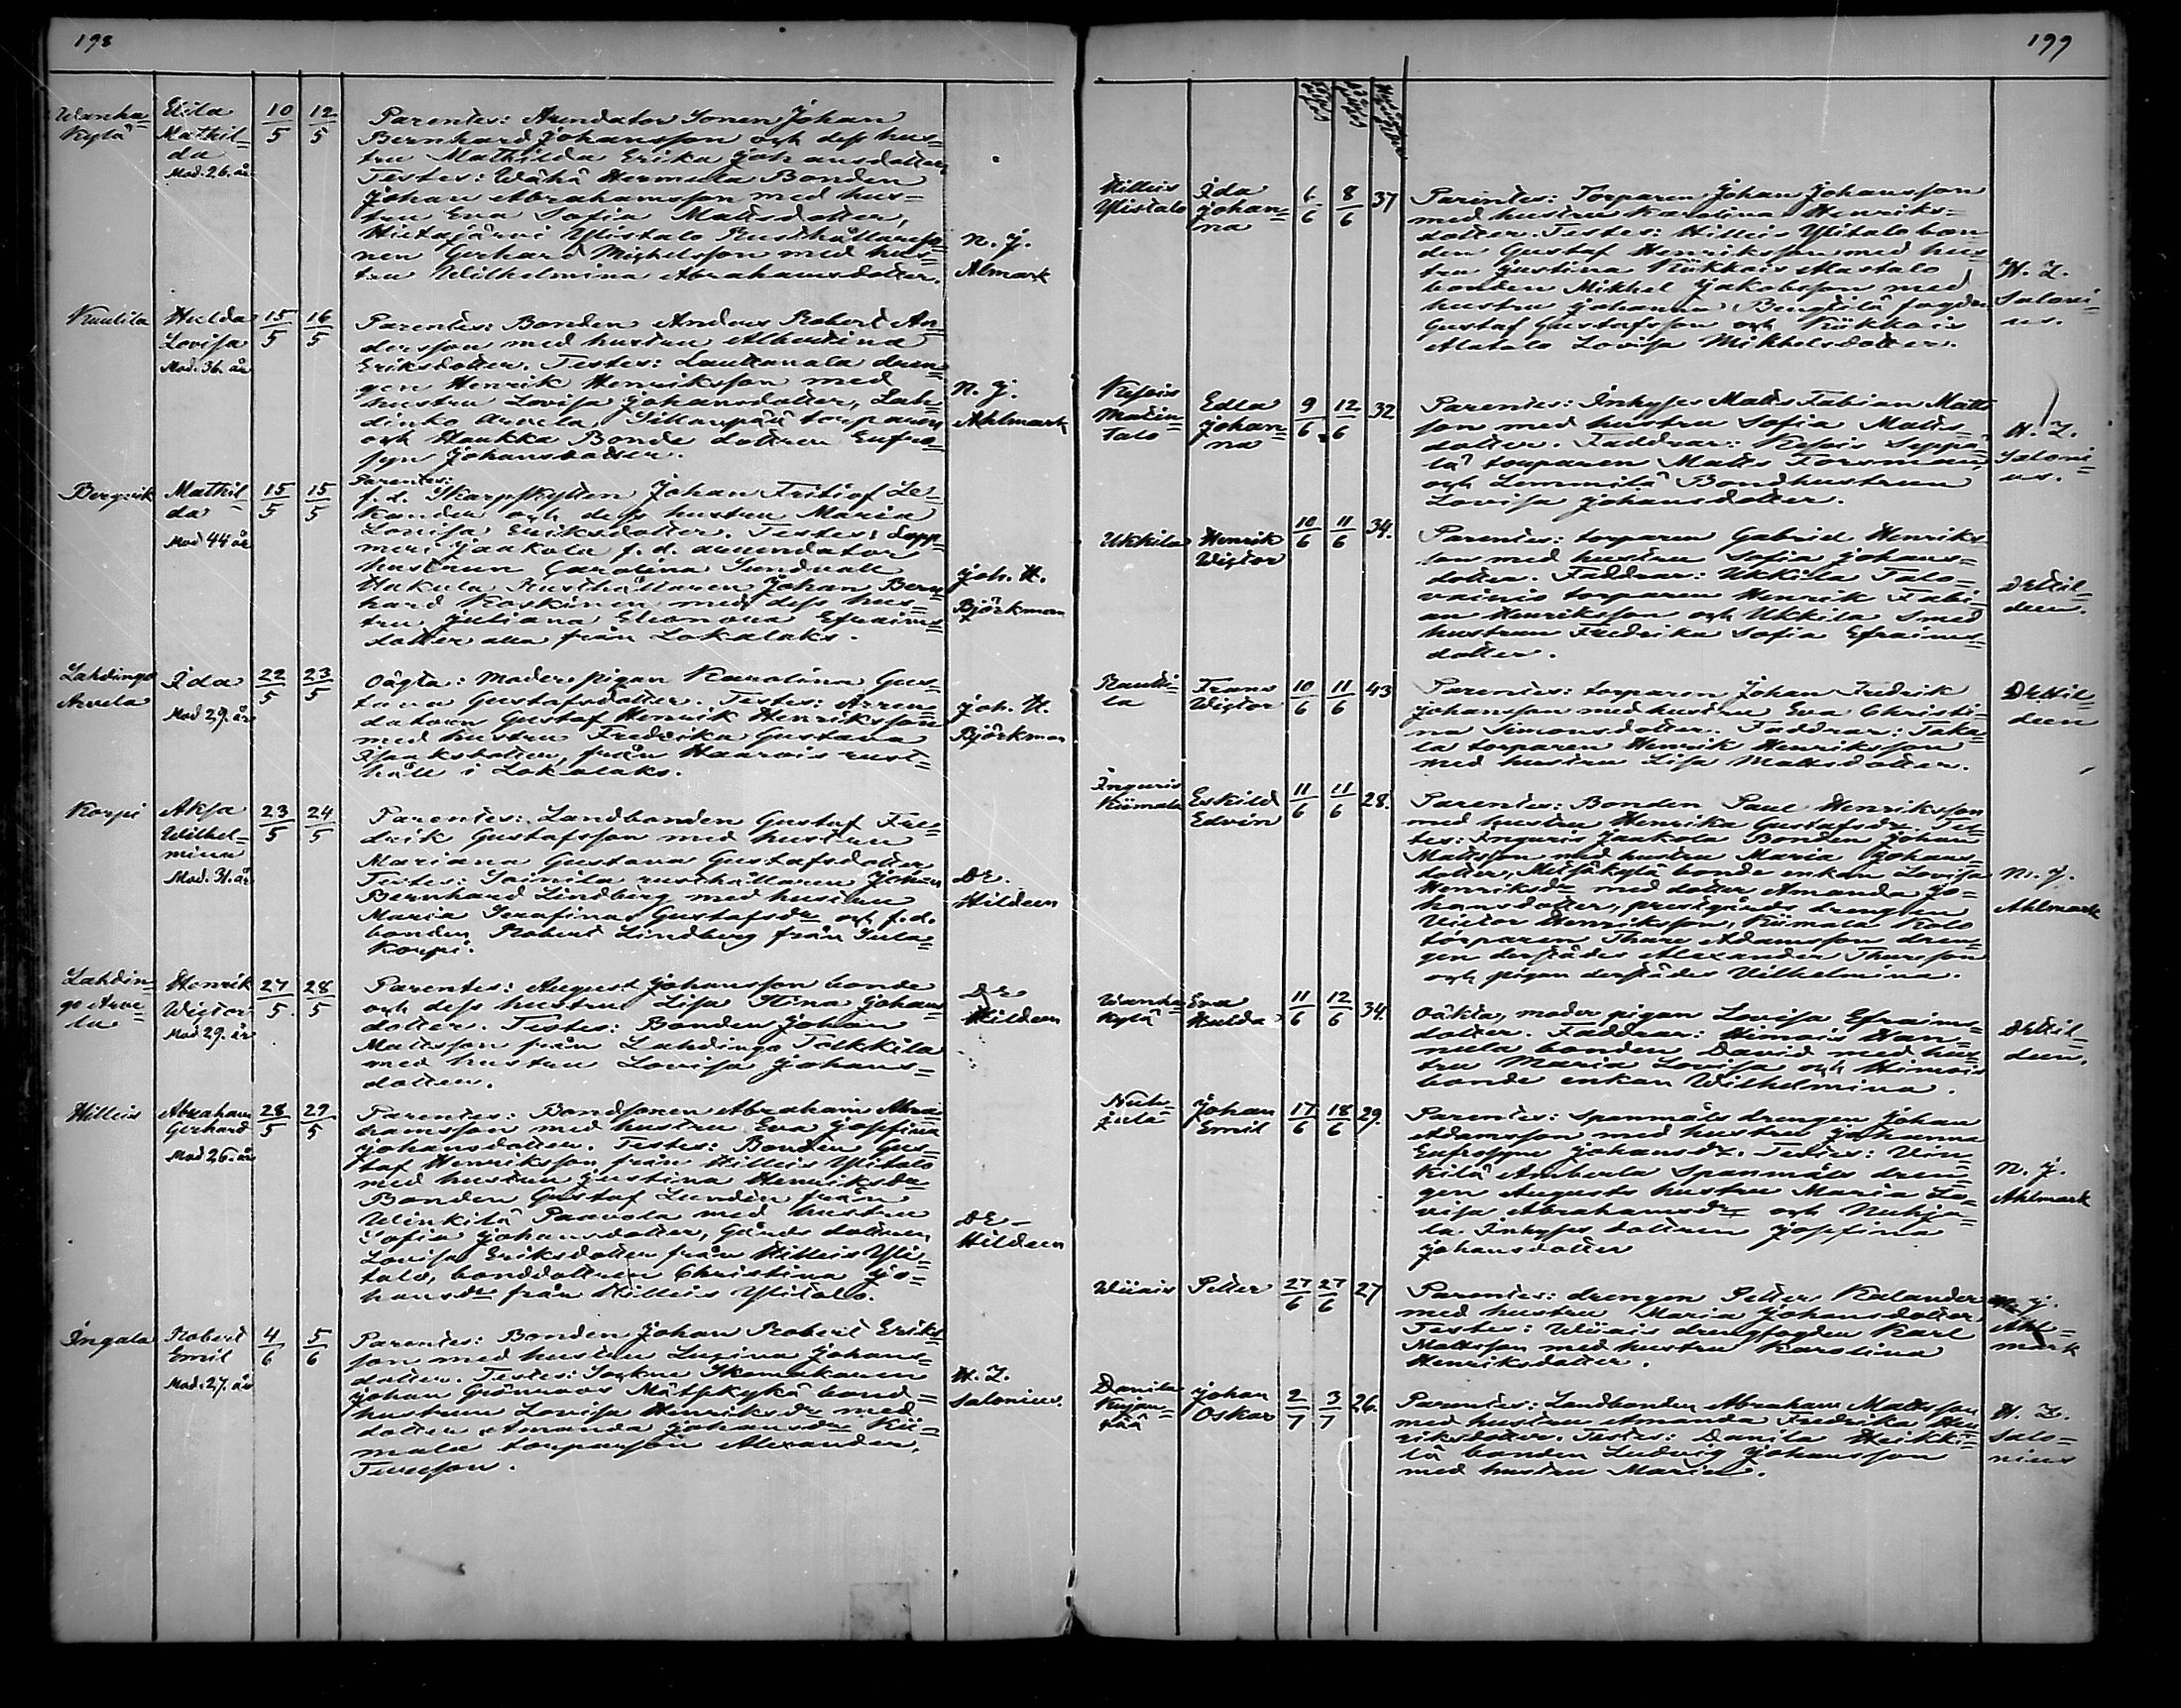 198
Wanha=
Kylä
Mathil=
da
Mod. 26. år
10/5
12/5
Parentes: Arendator Sonen Johan
Bernhard Johansson och dess hus=
tru Mathilda Erika Johansdotter
Testes: Wähä Hermula Bonden
Johan Abrahamsson med hus=
tru Eva Sofia Mattsdotter,
Hietajärvi Ylistalo Rusthållareso=
nen Gerhard Michelsson med hus=
tru Wilhelmina Abrahamsdotter.
N. J.
Almark
Kuulila
Hulda
Lovisa
Mod. 36. år
15/5
16/5
Parentes: Bonden Anders Robert An=
dersson med hustru Albertina
Eriksdotter. Testes: Lautkanala dren=
gen Henrik Henriksson med
hustru Lovisa Johansdotter, Lah=
dinko Arvela, Sillanpää torparen
och Haukka Bonde dottren Eufro=
syn Johansdotter.
N. J.
Ahlmark
Bergvik
Mathil=
da
Mod 44 år
15/5
15/5
Parentes:
f. d. Skarpskytten Johan Fritiof Le=
kander och dess hustru Maria
Lovisa Eriksdotter. Testes: Lepp=
meri Jaakola f. d. arrendator
hustrun Carolina Sundvall
Hakula Rusthållaren Johan Bern=
hard Koskinen med dess hus=
tru Juliana Eleonora Efraims=
dotter alla från Lokalaks.
Joh. H.
Björkman
Lahdingo
Arvela
Ida
Mod 29. år
22/5
23/5
Oägta: Moder pigan Karolina Gus=
tava Gustafsdotter. Testes: Arren=
datorn Gustaf Henrik Henriksson
med hustru Fredrika Gustava
Isaaksdotter, från Haarvis rust=
håll i Lokalaks.
Joh. H.
Björkman
Korpi
Aksa
Wilhel=
mina
Mod. 31. år
23/5
24/5
Parentes: Landbonden Gustaf Fre=
drik Gustafsson med hustru
Mariana Gustava Gustafsdotter
Testes: Soinila rusthållaren Johan
Bernhard Lindberg med hustru
Maria Serafina Gustafsdr och f. d.
bonden Robert Lindberg från Sula=
Korpi.
DE.
Hildeen
Lahdin=
go Arve=
la
Henrik
Wictor
Mod 29. år
27/5
28/5
Parentes: August Johansson bonde
och dess hustru Lisa Stina Johans=
dotter. Testes: Bonden Johan
Mattsson från Lahdingo Tolkkila
med hustru Lovisa Johans=
dotter.
DE
Hildeen
Hilleis
Abraham
Gerhard
Mod 26. år
28/5
29/5
Parentes: Bondsonen Abraham Abra=
hamsson med hustru Eva Josefina
Johansdotter. Testes: Bonden Gus=
taf Henriksson från Hilleis Ylitalo
med hustru Justina Henriksdr
Bonden Gustaf Lundén från
Winkilä Paavola med hustru
Sofia Johansdotter, Gårds dottren
Lovisa Eriksdotter från Hilleis Yli=
talo, bonddottren Christina Jo=
hansdr från Hilleis Ylitalo.
DE
Hildeen
Ingala
Robert
Emil
Mod. 27. år
4/6
5/6
Parentes: Bonden Johan Robert Eriks=
son med hustru Lusina Johans=
dotter. Testes: Sockne Skomakaren
Johan Grönroos Mätskykä bond=
hustrun Lovisa Henriksdr med
dotter Amanda Johansdr Kii=
mala torparson Alexander
Turesson.
H. Z.
Salonius
199
Hilleis
Ylistalo
Ida
Johan=
na
6/6
8/6
37
Parentes: Torparen Johan Johansson
med hustru Karolina Henriks=
dotter. Testes: Hilleis Ylitalo bon=
den Gustaf Henriksson med hus=
tru Justina Kükkais Alastalo
bonden Mikkel Jakobsson med
hustru Johanna Bengtilä fogden
Gustaf Gustafsson och Kükkais
Alatalo Lovisa Mikkelsdotter.
H. Z.
Saloni=
us.
Matin=
talo
Edla
Johan=
na
9/6
12/6
32
Parentes: Inhyses Matts Fabian Matts
son med hustru Sofia Matts=
dotter. Faddrar: Keysis Seppä=
lä torparen Matts Forsman
och Lemmilä Bondhustrun
Lovisa Johansdotter.
H. Z.
Saloni=
us.
Ukkila
Henrik
Wictor
10/6
11/6
34.
Parentes: torparen Gabriel Henriks
son med hustru Sofia Johans=
dotter. Faddrar: Ukkila Talo=
vainio torparen Henrik Fabi=
an Henriksson och Ukkila Smed
hustrun Fredrika Sofia Efraims=
dotter.
DEHil=
deen.
Rautti=
la
Frans
Wictor
10/6
11/6
43
Parentes: torparen Johan Fredrik
Johansson med hustru Eva Christi=
na Simonsdotter. Faddrar: Taka=
la torparen Henrik Henriksson
med hustru Lisa Mattsdotter.
DEHil=
deen
Inguris
Kümala
Eskild
Edvin
11/6
11/6
28.
Parentes: Bonden Paul Henriksson
med hustru Henrika Gustafsdr. Tes=
tes: Inguris Jaakola Bonden Johan
Mattsson med hustru Maria Johans=
dotter, Mätsäkylä bonde enkan Lovisa
Henriksdr med dotter Amanda Jo=
hansdotter, prestgårds drengen
Victor Henriksson, Kümala Kolo
torparen Thure Adamsson dren=
gen derstädes Alexander Thuresson
och pigan derstädes Vilhelmina.
N. J.
Ahlmark
Wanha=
Kylä
Eva
Hulda
11/6
12/6
34.
Oäkta, moder pigan Lovisa Efraims=
dotter. Faddrar: Himois Han=
nula bonden David med hus=
tru Maria Lovisa och Himois
bonde enkan Wilhelmina.
DEHil=
deen.
Nuh=
jala
Johan
Emil
17/6
18/6
29.
Parentes: Spanmåls drengen Johan
Adamsson med hustru Johanna
Eufrosyne Johansdr. Testes: Vin=
kilä Anberla Spanmåls dren=
gen Augusts hustru Maria Lo=
visa Abrahamsdr och Nuhja=
la Inhyses dottren Josefina
Johansdotter
N. J.
Ahlmark
Wiiais
Petter
27/6
27/6
27
Parentes: drengen Petter Kalander
med hustru Maria Johansdotter,
Testes: Wiiais drengfogden Karl
Mattsson med hustru Karolina
Henriksdotter.
N. J.
Ahl=
mark
Danila
Kujan=
pää
Johan
Oskar
2/7
3/7
26.
Parentes: Landbonden Abraham Mattsson
med hustru Amanda Fredrika Hen=
riksdotter. Testes: Danila Heikki=
lä bonden Ludvig Johansson
med hustru Maria.
H. Z.
Salo=
nius